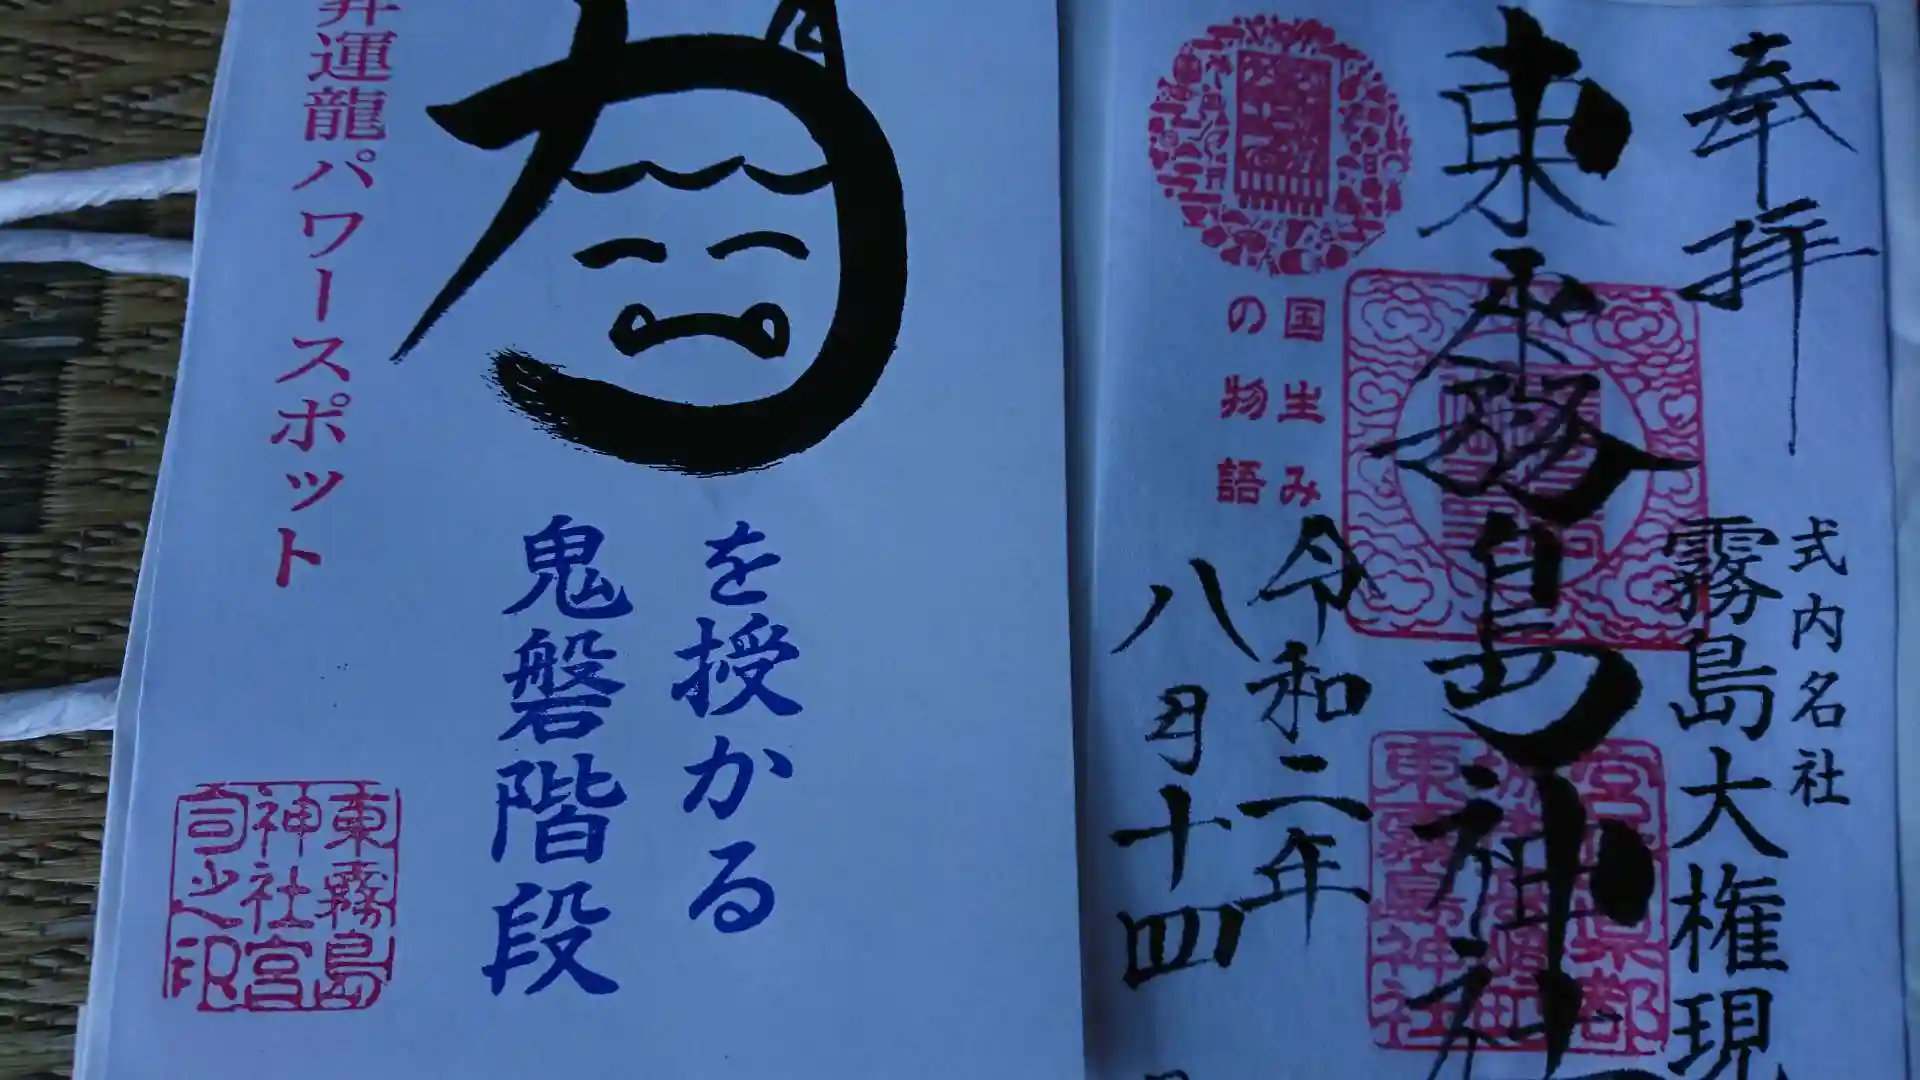 奉拝
式内名社
霧島大権現
東霧島神社
国生み
の物語
令和二年
八月十四
力
を授かる
鬼磐階段
昇運龍パワースポット
東霧島
神社宮
司之印